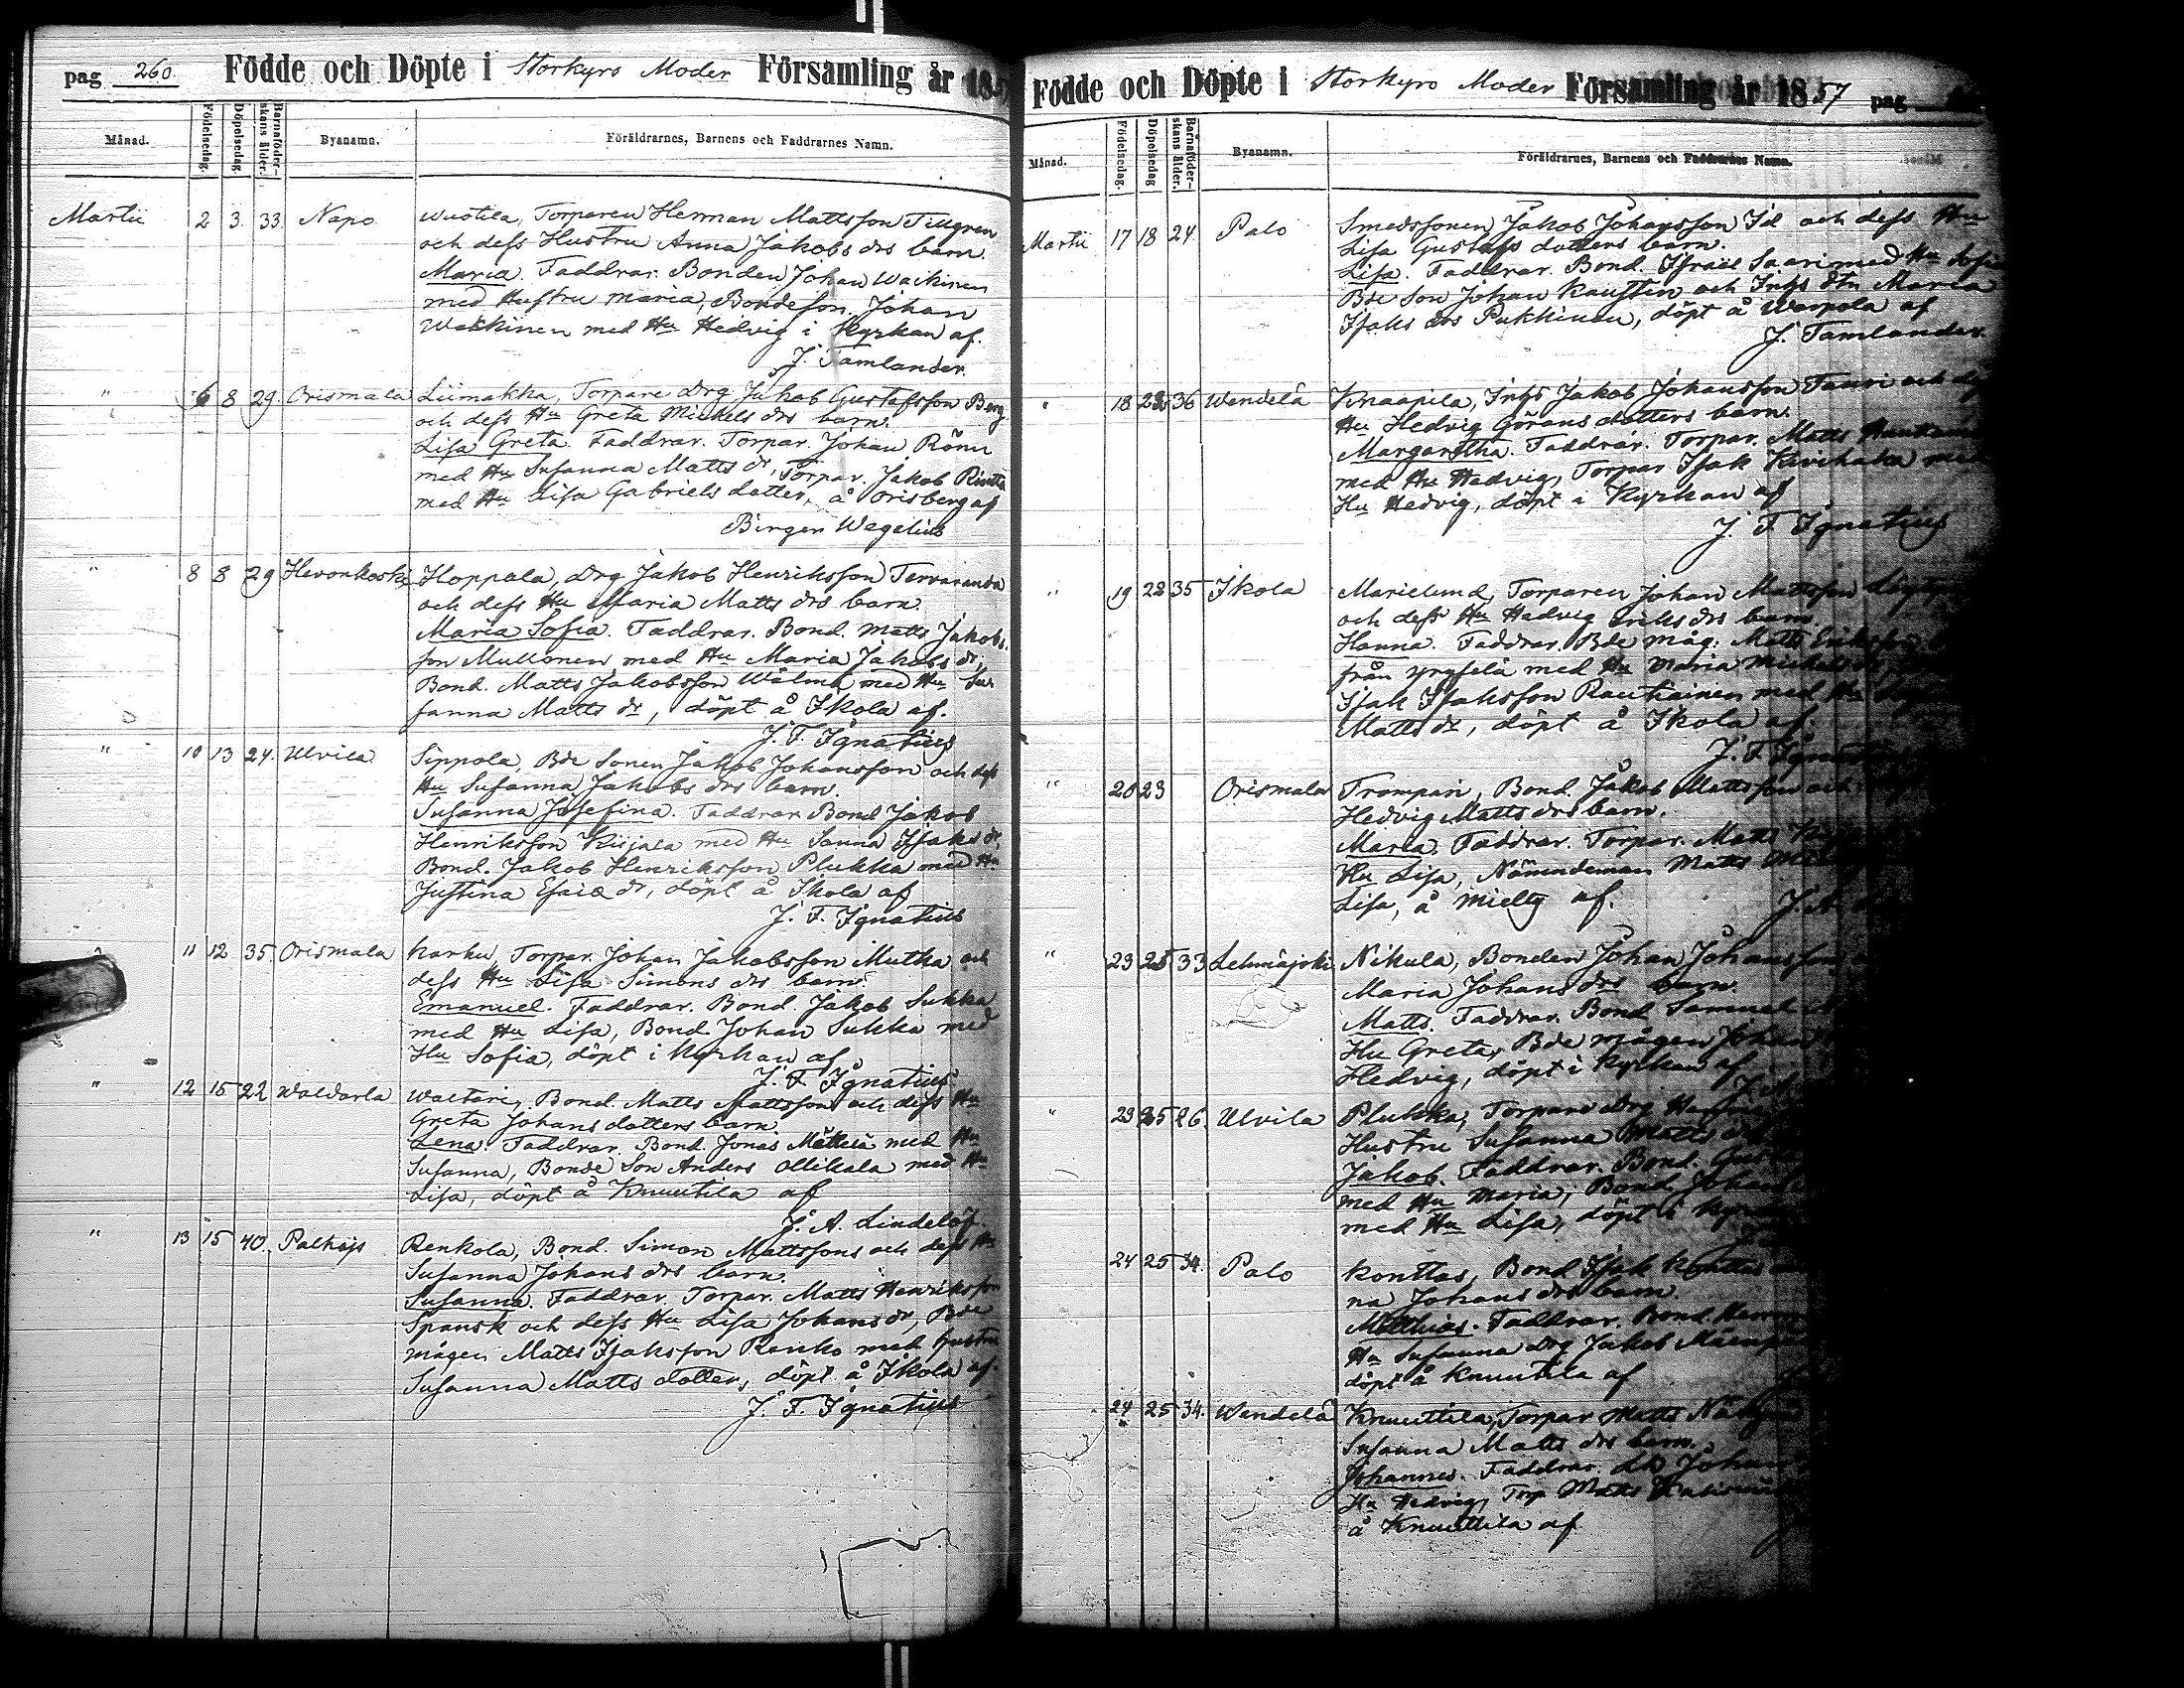 pag 260. Födde och Döpte i Storkyro Moder Församling år 1857
Månad. Födelsedag. Döpelsedag. Barnaföderskans ålder. Byanamn. Föräldrarnes, Barnens och Faddrarnes Namn.
Martii 2 3. 33. Napo Wuotila, Torparen Herman Mattsson Tillgren
och dess Hustru Anna Jakobs drs barn.
Maria. Faddrar. Bonden Johan Waikinen
med Hustru Maria, Bondeson. Johan
Waikinen med Hu Hedvig i Kyrkan af.
J. Tamlander.
" 6 8 29 Orismala Liimakka, Torpare drg Jakob Gustafsson Berg
och dess Hu Greta Mickels drs barn.
Lisa Greta. Faddrar. Torpar. Johan Rönn
med Hu Susanna Matts dr, Torpar. Jakob
med Hu Lisa Gabriels dotter, å Orisberg af
Birger Wegelius
" 8 8 29 Hevonkoski Hoppala, drg Jakob Henriksson Tervaranta
och dess Hu Maria Matts drs barn.
Maria Sofia. Faddrar. Bond. Matts Jakobs-
son Mullonen med Hu Maria Jakobs dr,
Bond. Matts Jakobsson Wälmä med Hu Su-
sanna Matts dr, döpt å Ikola af.
J. F. Ignatius
" 10 13 24. Ulvila Sippola, Bde Sonen Jakob Johansson och dess
Hu Susanna Jakobs drs barn.
Susanna Josefina. Faddrar Bond Jakob
Henriksson Kiijala med Hu Sanna Isaks dr,
Bond. Jakob Henriksson Plukka med Hu
Justina Esaiæ dr, döpt å Ikola af
J. F. Ignatius
" 11 12 35. Orismala Karhu, Torpar. Johan Jakobsson Mutka och
dess Hu Lisa Simons drs barn.
Emanuel. Faddrar. Bond. Jakob Sukka
med Hu Lisa, Bond. Johan Sukka med
Hu Sofia, döpt i Kyrkan af
J. F. Ignatius
" 12 15 22 Waldarla Waltari, Bond. Matts Mattsson och dess Hu
Greta Johans dotters barn.
Lena. Faddrar. Bond. Jonas Mattila med Hu
Susanna, Bonde Son Anders Ollikala med Hu
Lisa, döpt å Knuutila af
J. A. Lindelöf.
" 13 15 40. Palhojs Renkola, Bond. Simon Mattssons och dess Hu
Susanna Johans drs barn.
Susanna. Faddrar. Torpar. Matts Henriksson
Spansk och dess Hu Lisa Johans dr, Bde
mågen Matts Isaksson Renko med Hustru
Susanna Matts dotter, döpt å Ikola af.
J. F. Ignatius
Födde och Döpte i Storkyro Moder Församling år 1857 pag
Månad. Födelsedag. Döpelsedag Barnaföderskans ålder. Byanamn. Föräldrarnes, Barnens och Faddrarnes Namn.
Martii 17 18 24 Palo Smedssonen Jakob Johansson Il och dess Hu
Lisa Gustafs dotters barn.
Lisa. Faddrar. Bond. Israel Saari med Hu
Bde Son Johan Kaustin och Inhs Maria
Isaks drs Pukkinen, döpt å Warpola af
J. Tamlander.
" 18 22 36 Wendelä Knaapila, Inhs Jakob Johansson Tauri och
Hu Hedvig Görans dotters barn.
Margaretha. Faddrar. Torpar. Matts
med Hu Hedvig, Torpar Isak med
Hu Hedvig, döpt i Kyrkan af
J. F. Ignatius
" 19 22 35 Ikola Marielund, Torparen Johan Mattsson
och dess Hu Hedvig Eriks drs barn.
Hanna. Faddrar. Bde måg. Matts Eriksson
från med Hu Maria Mickels
Isak Isaksson Rautiainen med Hu
Matts dr, döpt å Ikola af.
J. F. Ignatius
" 20 23 Orismala Trompari, Bond. Jakob Mattsson och
Hedvig Matts drs barn.
Maria. Faddrar. Torpar. Matts
Hu Lisa, Nämndeman Matts
Lisa, å Mielty af.
J. A.
" 23 25 33 Lehmäjoki Nikula, Bonden Johan Johansson
Maria Johans drs barn.
Matts. Faddrar. Bond Samuel
Hu Greta, Bde mågen Johan
Hedvig, döpt i Kyrkan af
J. A.
" 23 25 26. Ulvila Plukka, Torpare drg
Hustru Susanna Matts drs
Jakob. Faddrar. Bond.
med Hu Maria, Bond. Johan
med Hu Lisa, döpt i
24 25 34. Palo Konttas, Bond Isak Konttas
na Johans drs barn.
Matthias. Faddrar. Bond.
Hu Susanna drg Jakob
döpt å Knuutila af
24 25 34. Wendelä Knuuttila, Torpar Matts
Susanna Matts drs barn.
Johannes. Faddrar. Johan
Hu Hedvig, Torp Matts
å Knuuttila af